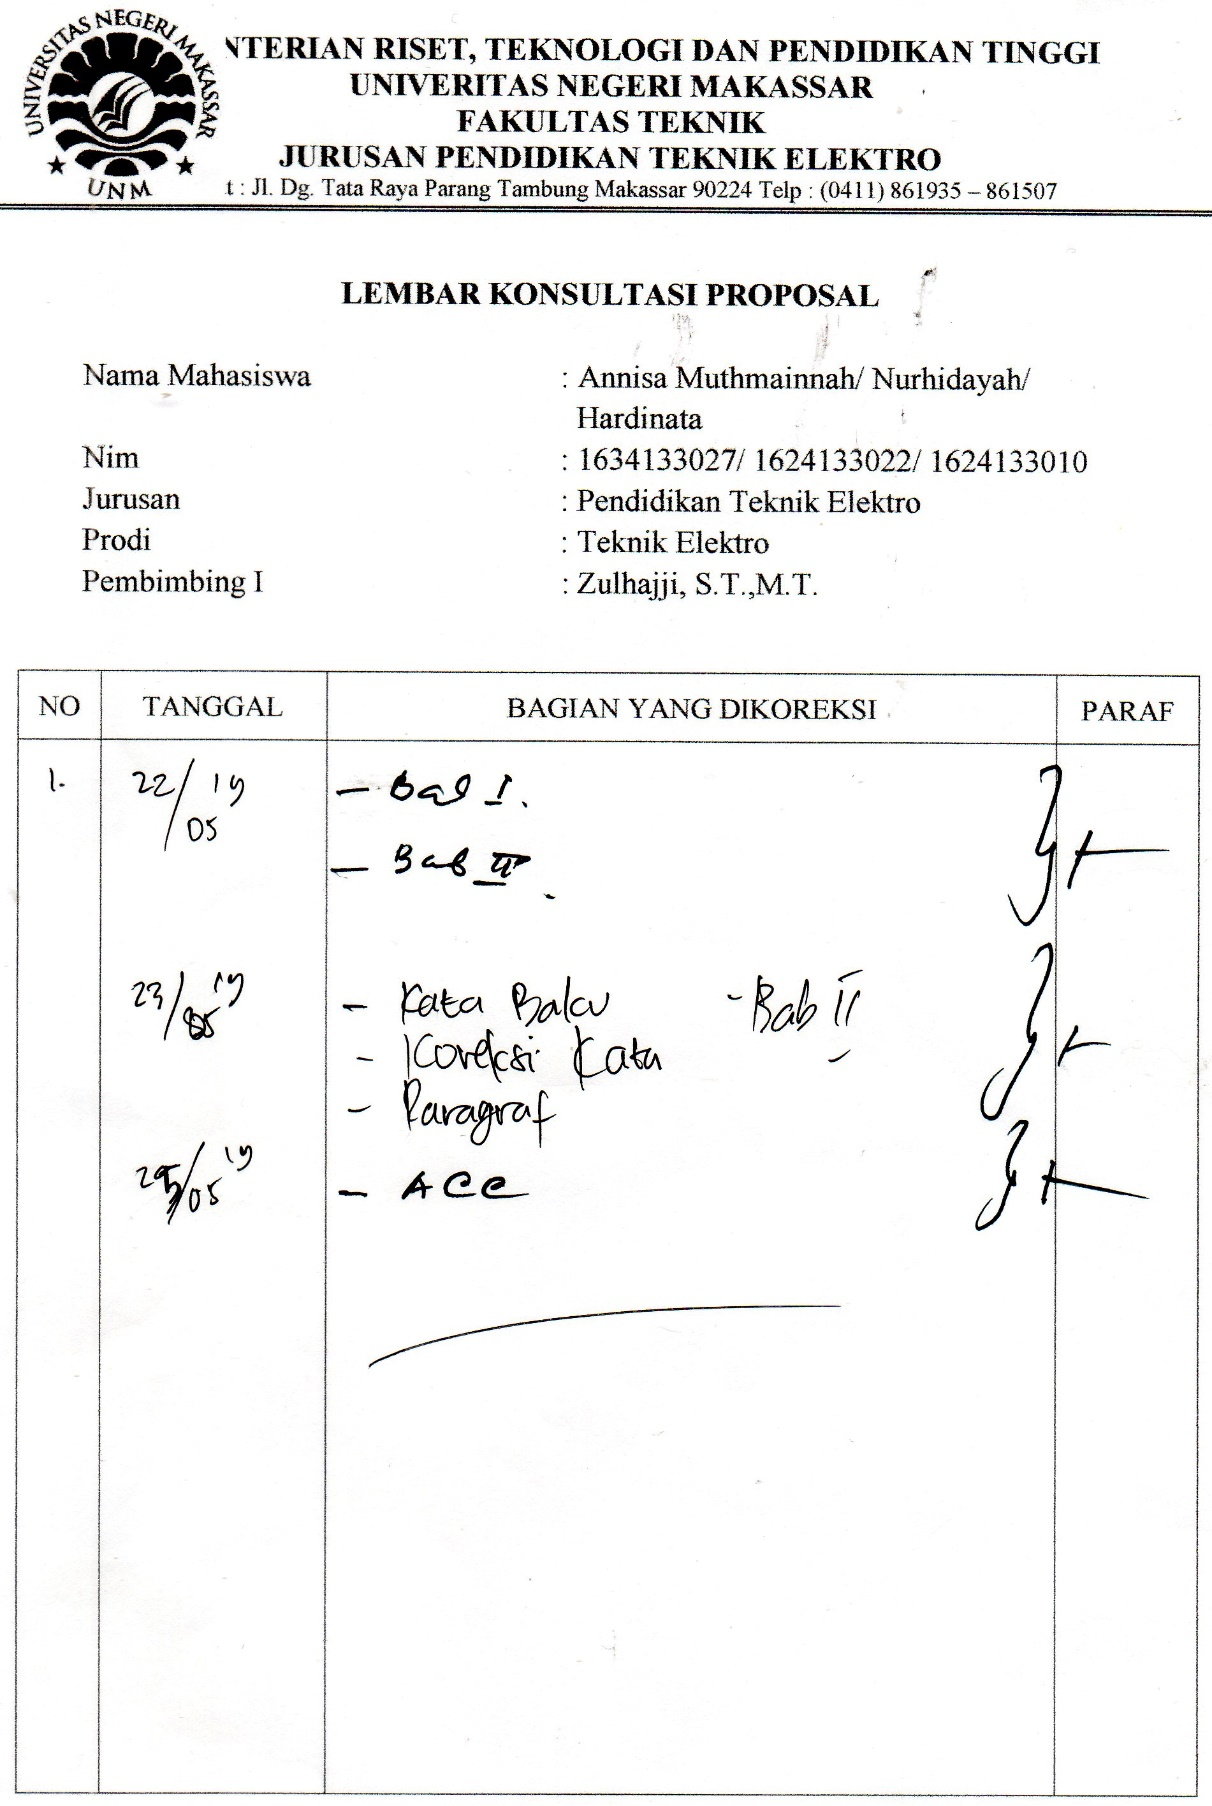 UNIVERSITAS NEGERI MAKASSAR
UNM
NTERIAN RISET, TEKNOLOGI DAN PENDIDIKAN TINGGI
UNIVERITAS NEGERI MAKASSAR
FAKULTAS TEKNIK
JURUSAN PENDIDIKAN TEKNIK ELEKTRO
t : Jl. Dg. Tata Raya Parang Tambung Makassar 90224 Telp : (0411) 861935 – 861507
LEMBAR KONSULTASI PROPOSAL
Nama Mahasiswa : Annisa Muthmainnah/ Nurhidayah/
Hardinata
Nim : 1634133027/ 1624133022/ 1624133010
Jurusan : Pendidikan Teknik Elektro
Prodi : Teknik Elektro
Pembimbing I : Zulhajji, S.T.,M.T.
NO TANGGAL BAGIAN YANG DIKOREKSI PARAF
1. 22/05 19 – Bab I.
– Bab II.
23/05 19 – Kata Baku - Bab II
– Koreksi Kata –
– Paragraf
25/05 19 – ACC